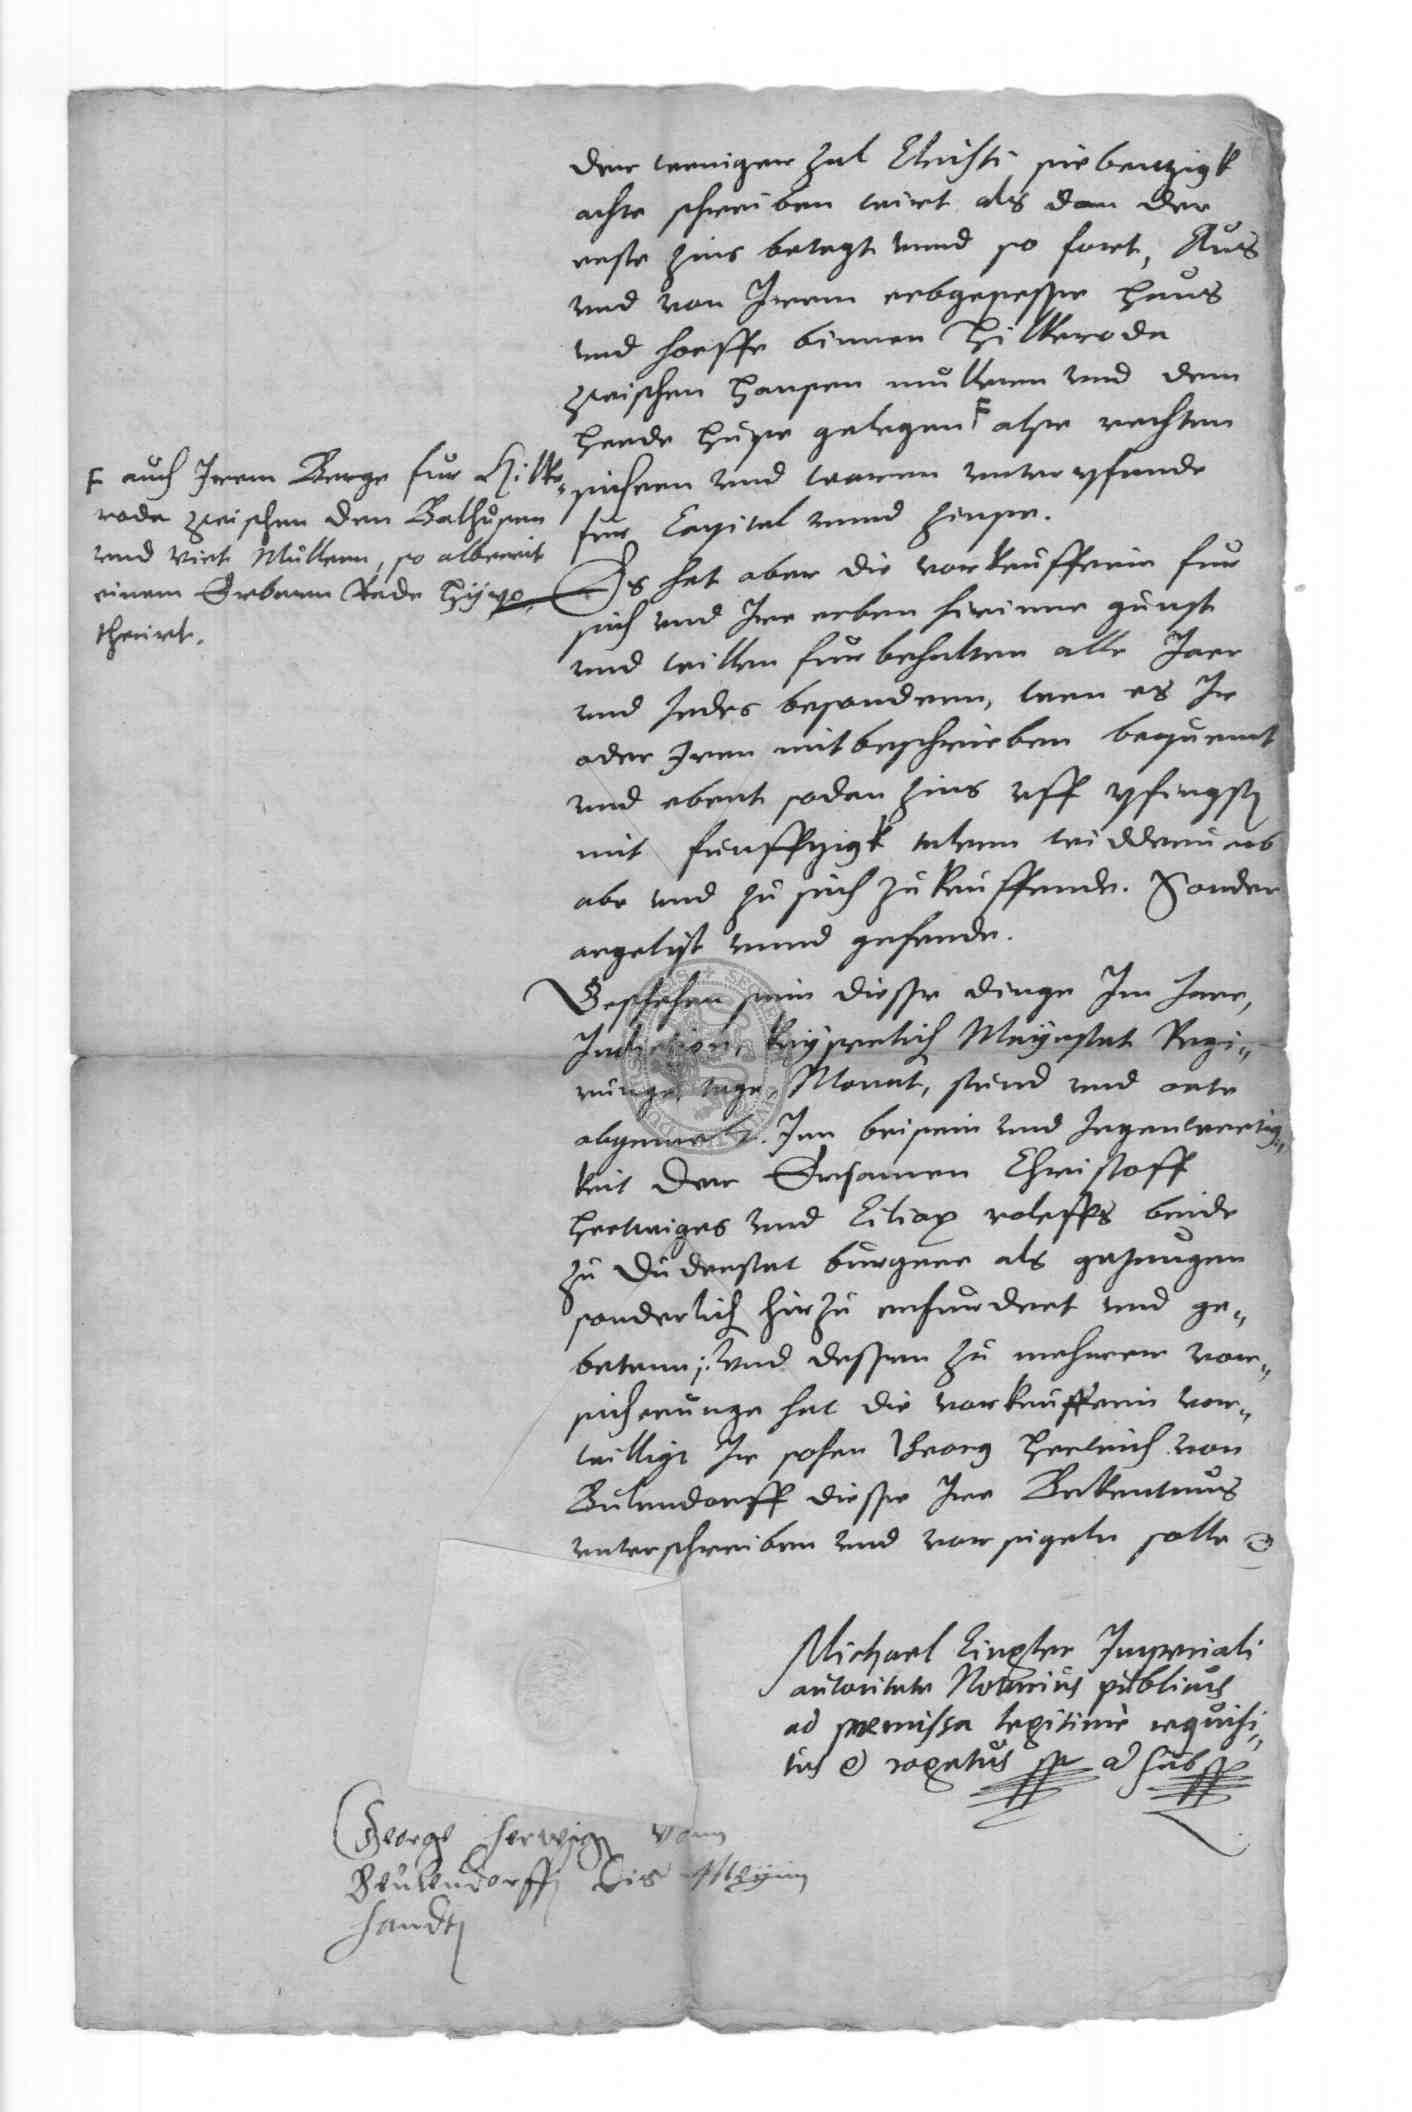 der weniger zal Christi siebentzigk
achte schreiben wirt als dan der
erste zins betagt unnd so fort, Aus
und von Irem erbgesesse Haus
und hoeffe binnen Hilkeroda
zwischen Hansen mullern und dem
Heede Huse gelegen F alse rechten
sichern und waren unterpfande
fur Capital unnd zinse.
F auch Irem Berge fur Hilke„
rode zwischen den Balhusen
und Virt Mullern, so albereit
einem Erbarn Rade Hypo„
thecirt.
Es hat aber die vorkeufferin fur
sich und Ire erben hirinne gunst
und willen furbehalten alle Jaer
und Jedes besondern, wen es Ir
oder Iren mitbeschrieben bequemt
und ebent sodan zins uff pfingsten
mit funffzigk talern widderumb
abe und zu sich zukeuffende. Sonder
argelist unnd geferde.
Geschehen sein diesse dinge Im Jare,
Indiction, Keyserlich Mayestat Regi„
runge, tage, Monat, stund und orte
obgemelt. Inn beisein und Jegenwertig„
keit der Ersamen Christoff
Hertwiges und Ciliax roleffs beide
zu Duderstat burgere als gezeugen
sonderlich hirzu erfurdert und ge„
betenn;. Und dessen zu mehrer vor„
sicherunge hat die vorkeufferin vor„
willigt Ir sohen Georg Hertwich von
Bulendorff diesse Ire Bekentnus
unterschreiben und vorsigeln solle
Michael Cingler Imperiali
autoritate Notarius publicus
ad premissa legitime requisi„
tus & rogatus sst ad subsst
George herwig vonn
Beulendorff dis Meyin
handt